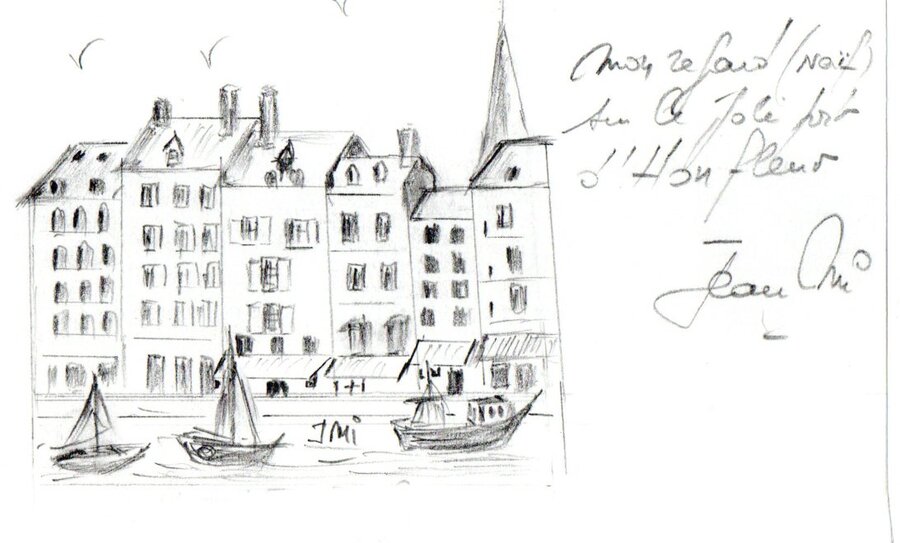 Mon regard (naïf)
sur le Joli port
d'Honfleur
Jean Mi
JMi